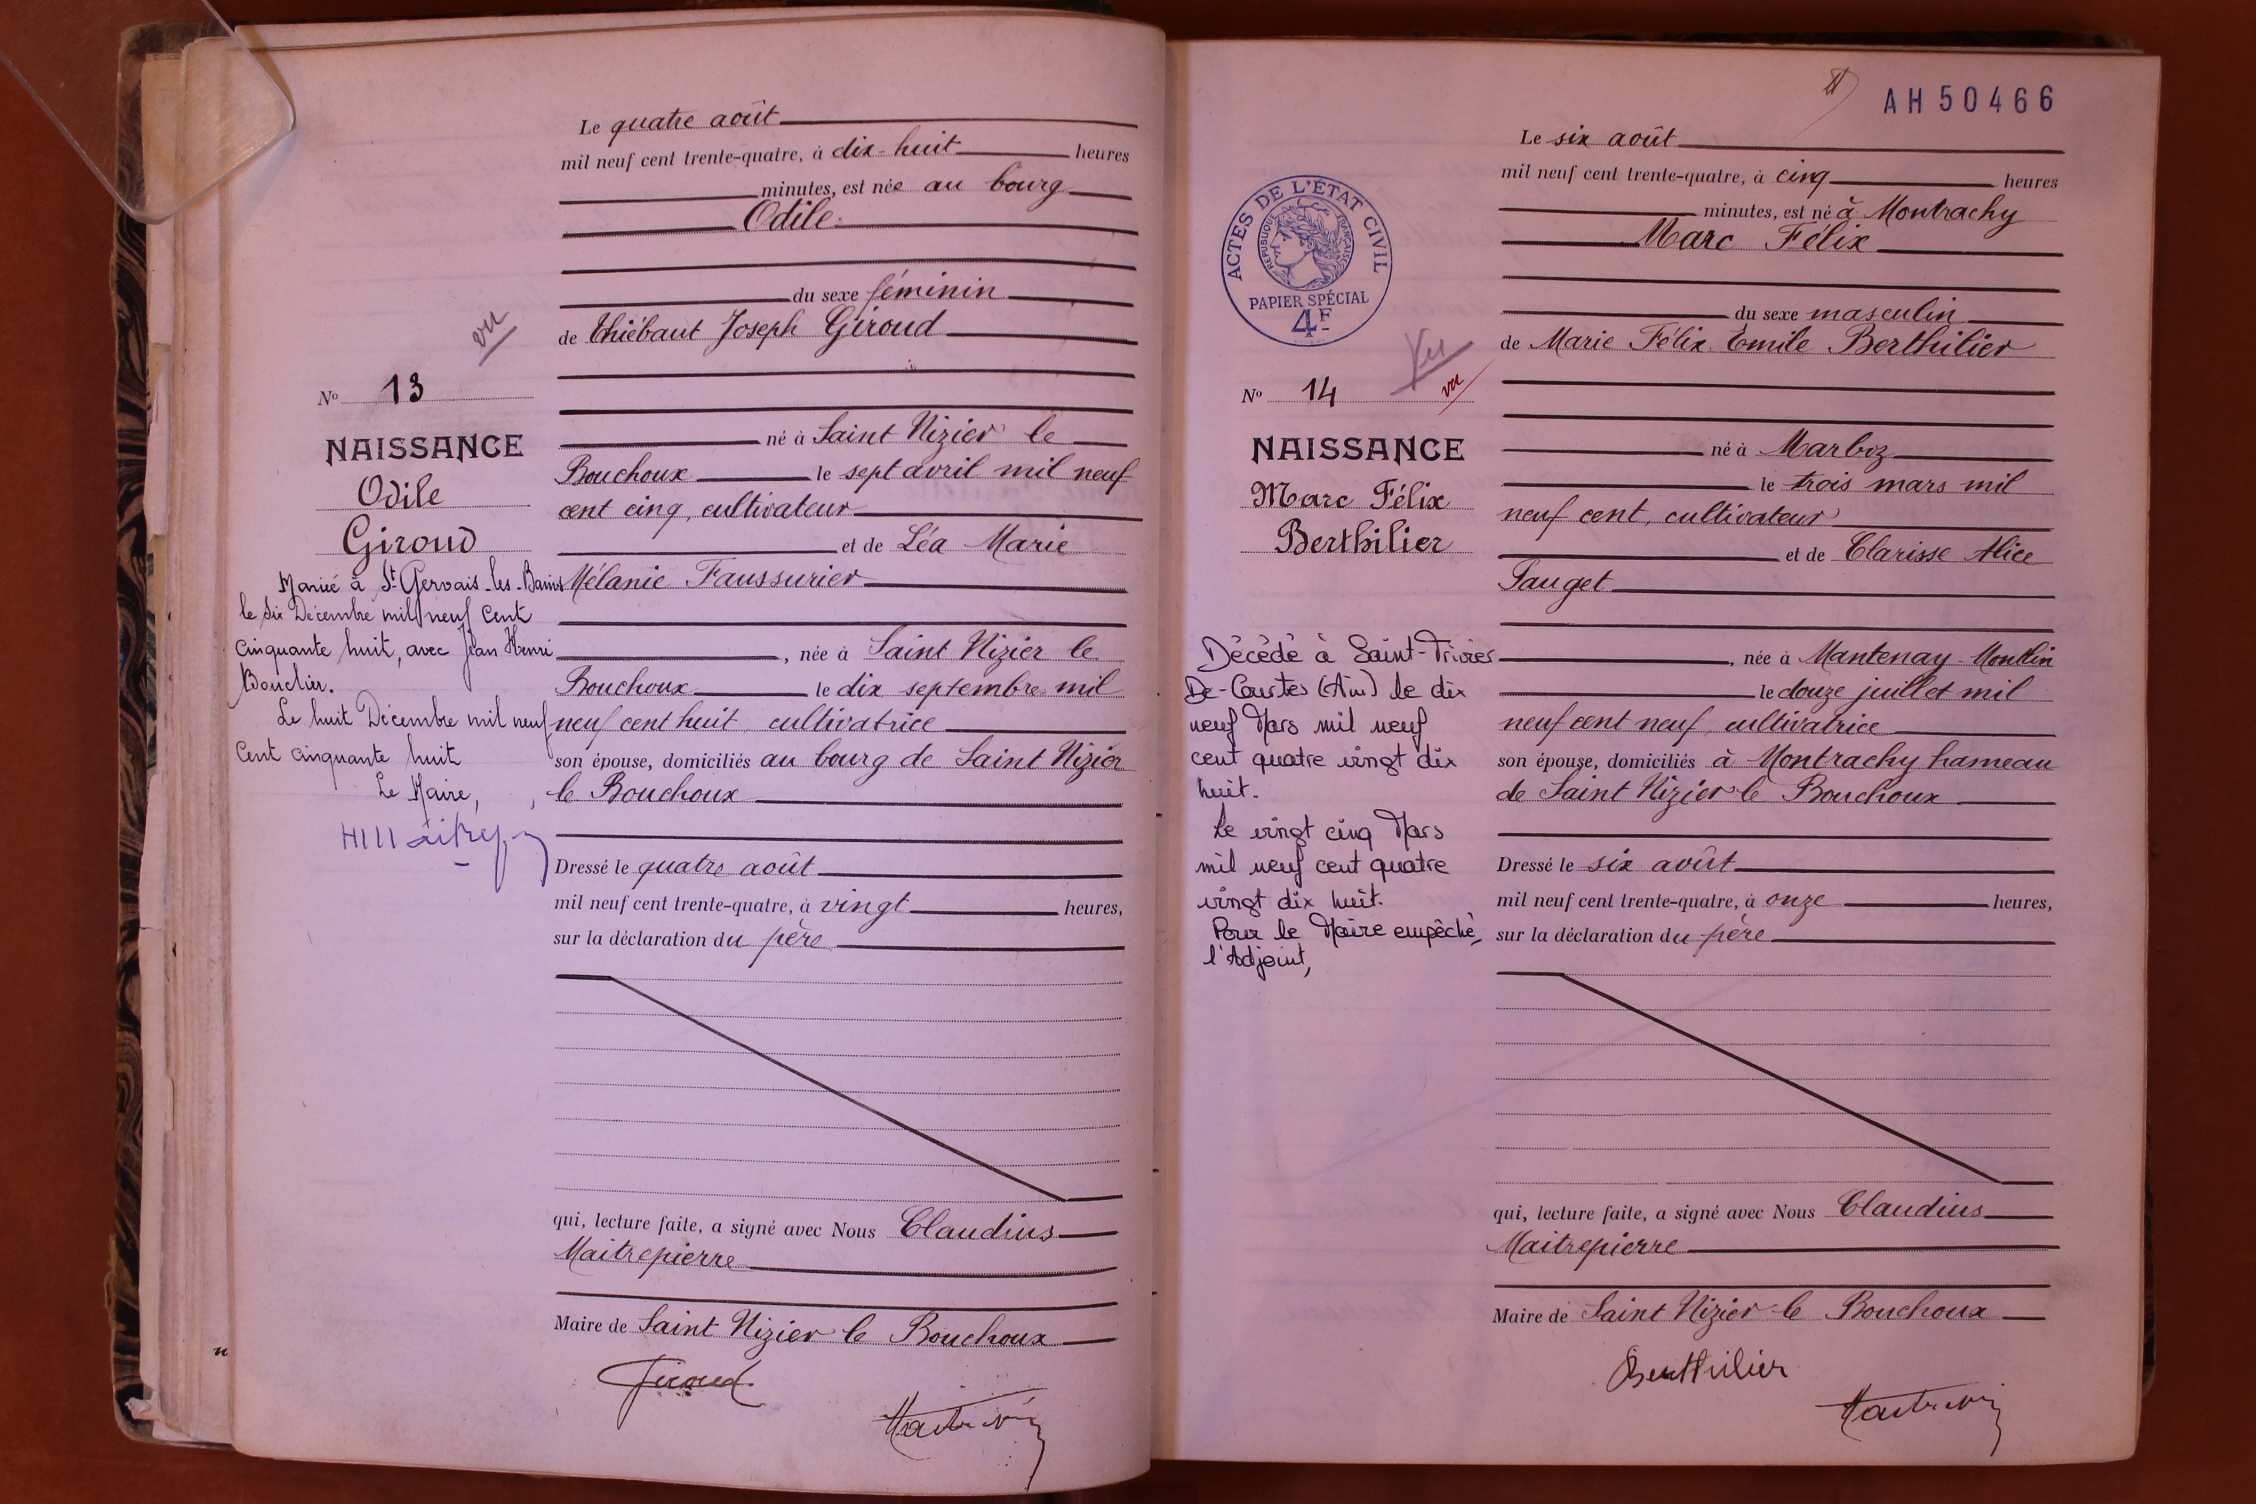 Le quatre août
mil neuf cent trente-quatre, à dix-huit heures
minutes, est née au bourg
Odile
du sexe féminin
de Thiébaut Joseph Giroud
né à Saint Nizier le
Bouchoux le sept avril mil neuf
cent cinq, cultivateur
et de Léa Marie
Mélanie Faussurier
, née à Saint Nizier le
Bouchoux le dix septembre mil
neuf cent huit, cultivatrice
son épouse, domiciliés au bourg de Saint Nizier
le Bouchoux
Dressé le quatre août
mil neuf cent trente-quatre, à vingt heures,
sur la déclaration du père
qui, lecture faite, a signé avec Nous Claudius
Maitrepierre
Maire de Saint Nizier le Bouchoux
Giroud
vu
No 13
NAISSANCE
Odile
Giroud
Mariée à St Gervais-les-Bains
le six Décembre mil neuf cent
cinquante huit, avec Jean Henri
Le huit Décembre mil neuf
cent cinquante huit
Le Maire,
AH 50466
Le six août
mil neuf cent trente-quatre, à cinq heures
minutes, est né à Montrachy
Marc Félix
du sexe masculin
de Marie Félix Émile Berthilier
né à Marboz
le trois mars mil
neuf cent, cultivateur
et de Clarisse Alice
Pauget
, née à Mantenay-Montlin
le douze juillet mil
neuf cent neuf, cultivatrice
son épouse, domiciliés à Montrachy hameau
de Saint Nizier le Bouchoux
Dressé le six août
mil neuf cent trente-quatre, à onze heures,
sur la déclaration du père
qui, lecture faite, a signé avec Nous Claudius
Maitrepierre
Maire de Saint Nizier le Bouchoux
Berthilier
ACTES DE L'ÉTAT CIVIL
RÉPUBLIQUE FRANÇAISE
PAPIER SPÉCIAL
4F
Vu
vu
No 14
NAISSANCE
Marc Félix
Berthilier
Décédé à Saint-Trivier
De-Courtes (Ain) le dix
neuf Mars mil neuf
cent quatre vingt dix
huit.
Le vingt cinq Mars
mil neuf cent quatre
vingt dix huit.
Pour le Maire empêché,
l'Adjoint,